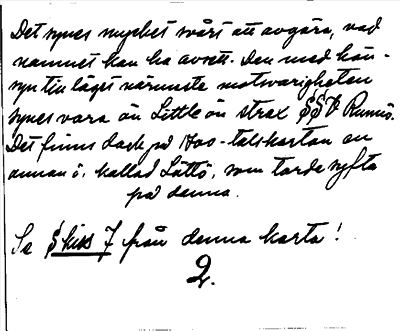 Det synes mycket svårt att avgöra, vad
namnet kan ha avsett. Den med hän-
syn till läget närmaste motsvarigheten
synes vara ön Little ön strax SSV Runnö.
Det finns dock på 1700-talskartan en
annan ö, kallad Låttö, som torde syfta
på denna.
Se skiss 7 från denna karta!
2.